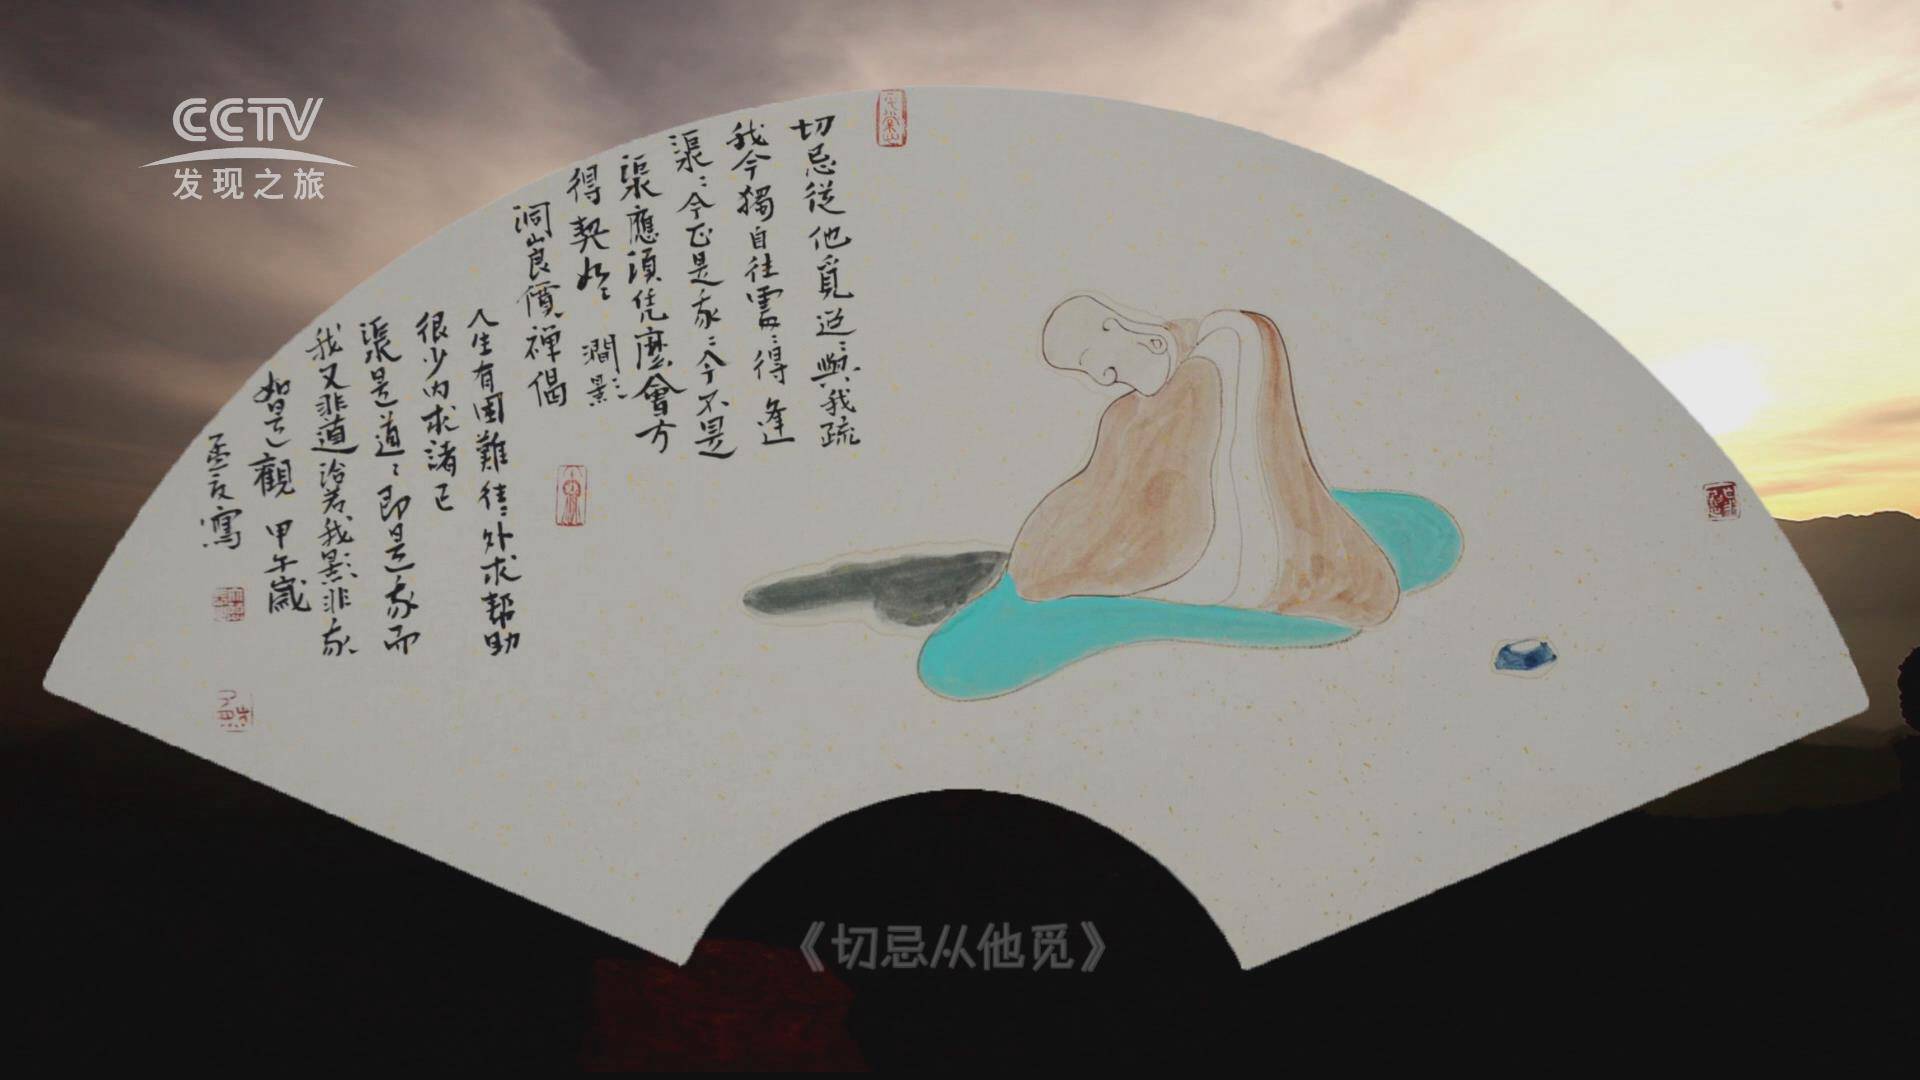 CCTV
发现之旅
切忌從他覓迢〻與我疏
我今獨自往處〻得逢
渠〻今正是我〻今不是
渠應須恁麼會方
得契如〻 澗影〻景
洞山良價禅偈
人生有困難往〻外求帮助
很少内求諸己
渠是道〻即是我而
我又非道洽若我影非我
如是觀 甲午歲
寫
《切忌从他觅》